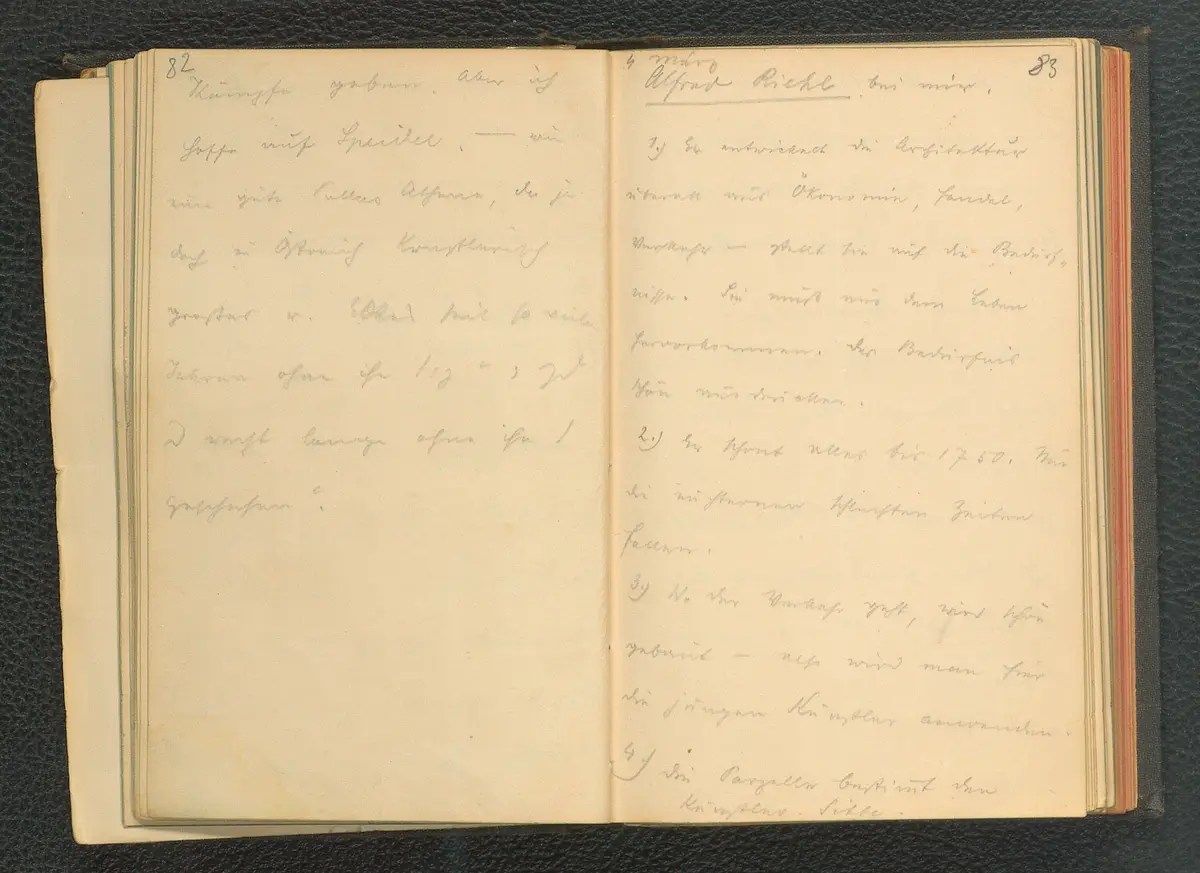 82
Kämpfe geben. Aber ich
hoffe auf Speidel. — wie
eine gute Pallas Athene, die ja
doch in Östreich künstlerisch
großes
seit so viele
Jahren ohne ihn
nicht lange ohne ihn
geschehen".
83
4 März
Alfred Riehl bei mir.
1.) Er entwickelt die Architektur
überall aus Ökonomie, Handel,
Verkehr — stellt sie auf die Bedürf-
nisse. Sie muß aus dem Leben
hervorkommen. Das Bedürfnis
schön
2.) Er schont alles bis 1750. Nur
die nüchternen schlechten Zeiten
fallen.
3.) Wo der Verkehr geht, wird schön
gebaut — also wird man hier
die jungen Künstler anwenden.
4.) Die Parzelle bestimmt den
Künstler. Sitte.